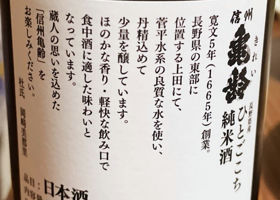 信州
亀齢
きれい
長野県産
ひとごこち
純米酒
寛文5年(1665年)創業。
長野県の東部に
位置する上田にて、
菅平水系の良質な水を使い、
丹精込めて
少量を醸しています。
ほのかな香り・軽快な飲み口で
食中酒に適した味わいと
なっています。
蔵人の思いを込めた
「信州亀齢」を
お楽しみください。
杜氏 岡崎美都里
日本酒
品目
内容量